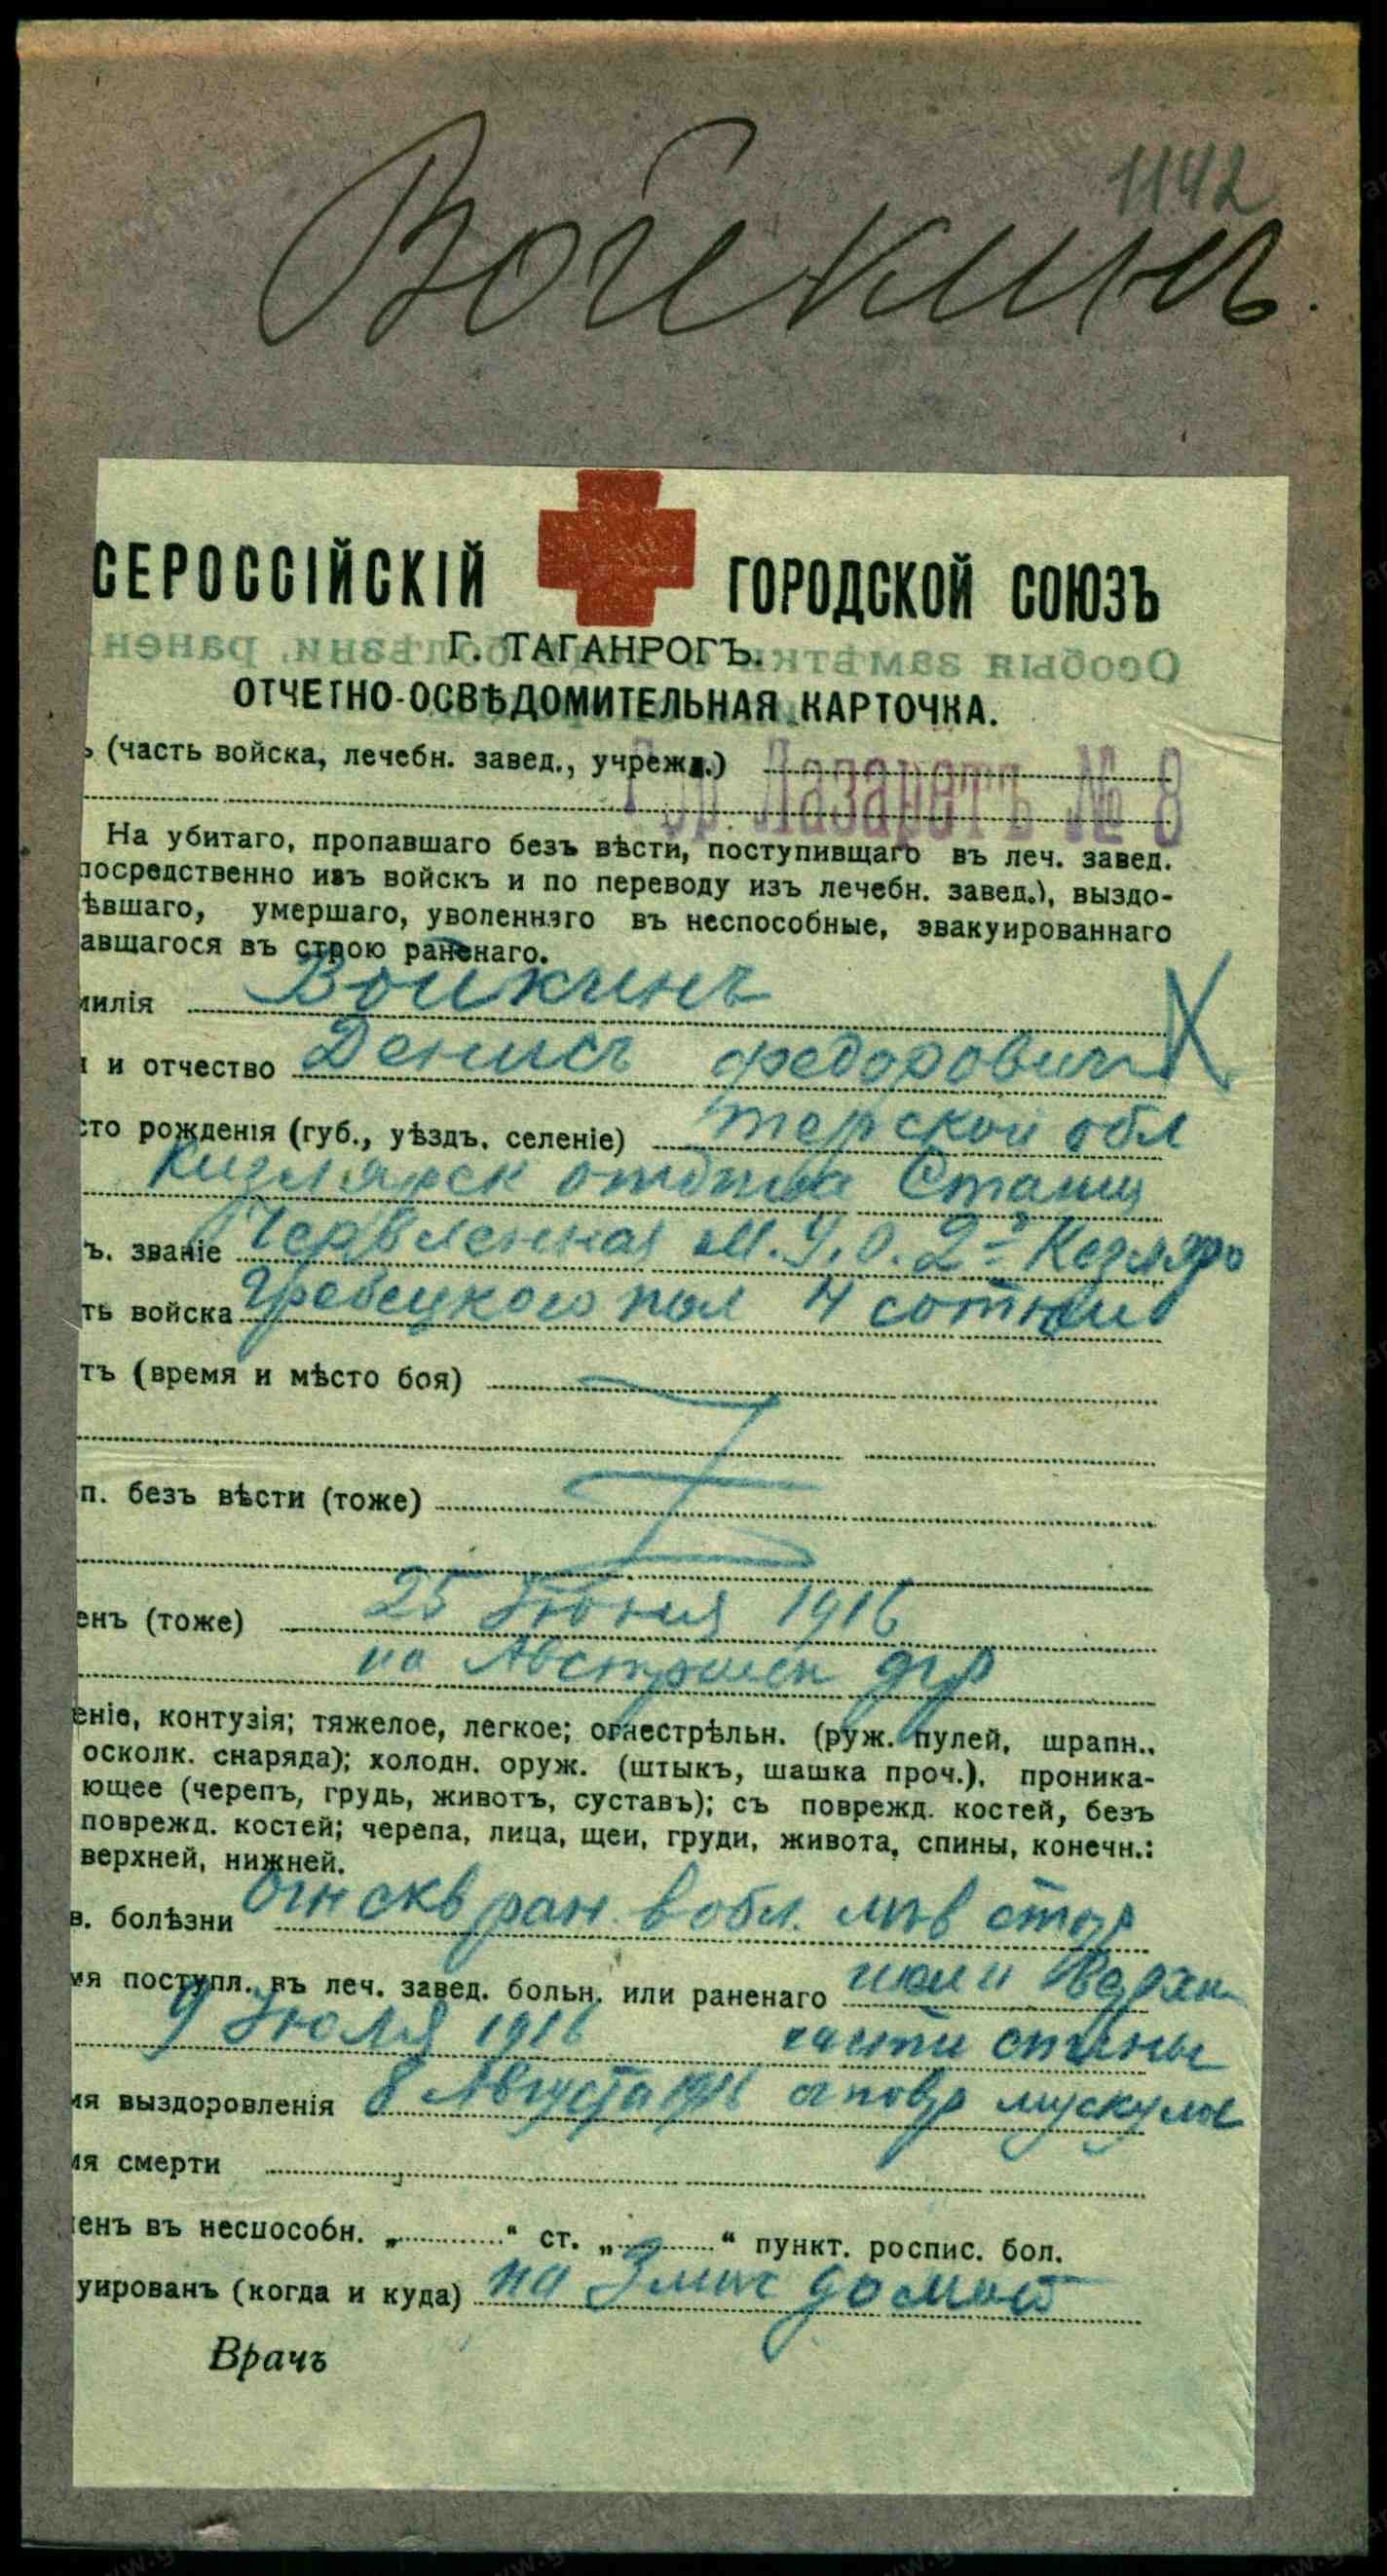 1142
Войкинъ.
СЕРОССІЙСКІЙ ГОРОДСКОЙ СОЮЗЪ
Г. ТАГАНРОГЪ.
ОТЧЕТНО-ОСВѢДОМИТЕЛЬНАЯ КАРТОЧКА.
ь (часть войска, лечебн. завед., учрежд.)
Гор. Лазаретъ № 8
На убитаго, пропавшаго безъ вѣсти, поступивщаго въ леч. завед.
посредственно изъ войскъ и по переводу изъ лечебн. завед.), выздо-
ѣвшаго, умершаго, уволеннаго въ неспособные, эвакуированнаго
авшагося въ строю раненаго.
милія Войкинъ
и отчество Денисъ Федорович
сто рожденія (губ., уѣздъ, селеніе) Терской обл
Кизлярск отдѣла Станиц
ъ. званіе Червленная М. У. О. 2-й Кизляро
ть войска Гребецкого пол 4 сотни
тъ (время и мѣсто боя)
п. безъ вѣсти (тоже)
енъ (тоже) 25 Іюня 1916
на Австрійск фр
еніе, контузія; тяжелое, легкое; огнестрѣльн. (руж. пулей, шрапн.,
осколк. снаряда); холодн. оруж. (штыкъ, шашка проч.), проника-
ющее (черепъ, грудь, животъ, суставъ); съ поврежд. костей, безъ
поврежд. костей; черепа, лица, щеи, груди, живота, спины, конечн.:
верхней, нижней.
в. болѣзни Огн скв ран в обл. лѣв стор
мя поступл. въ леч. завед. больн. или раненаго шеи и Верхн
9 Іюля 1916 части спины
мя выздоровленія 8 Августа 1916 с повр мускулов
мя смерти
енъ въ неспособн. „ “ ст. „ “ пункт. роспис. бол.
уированъ (когда и куда) на 3 мѣс домой
Врачъ